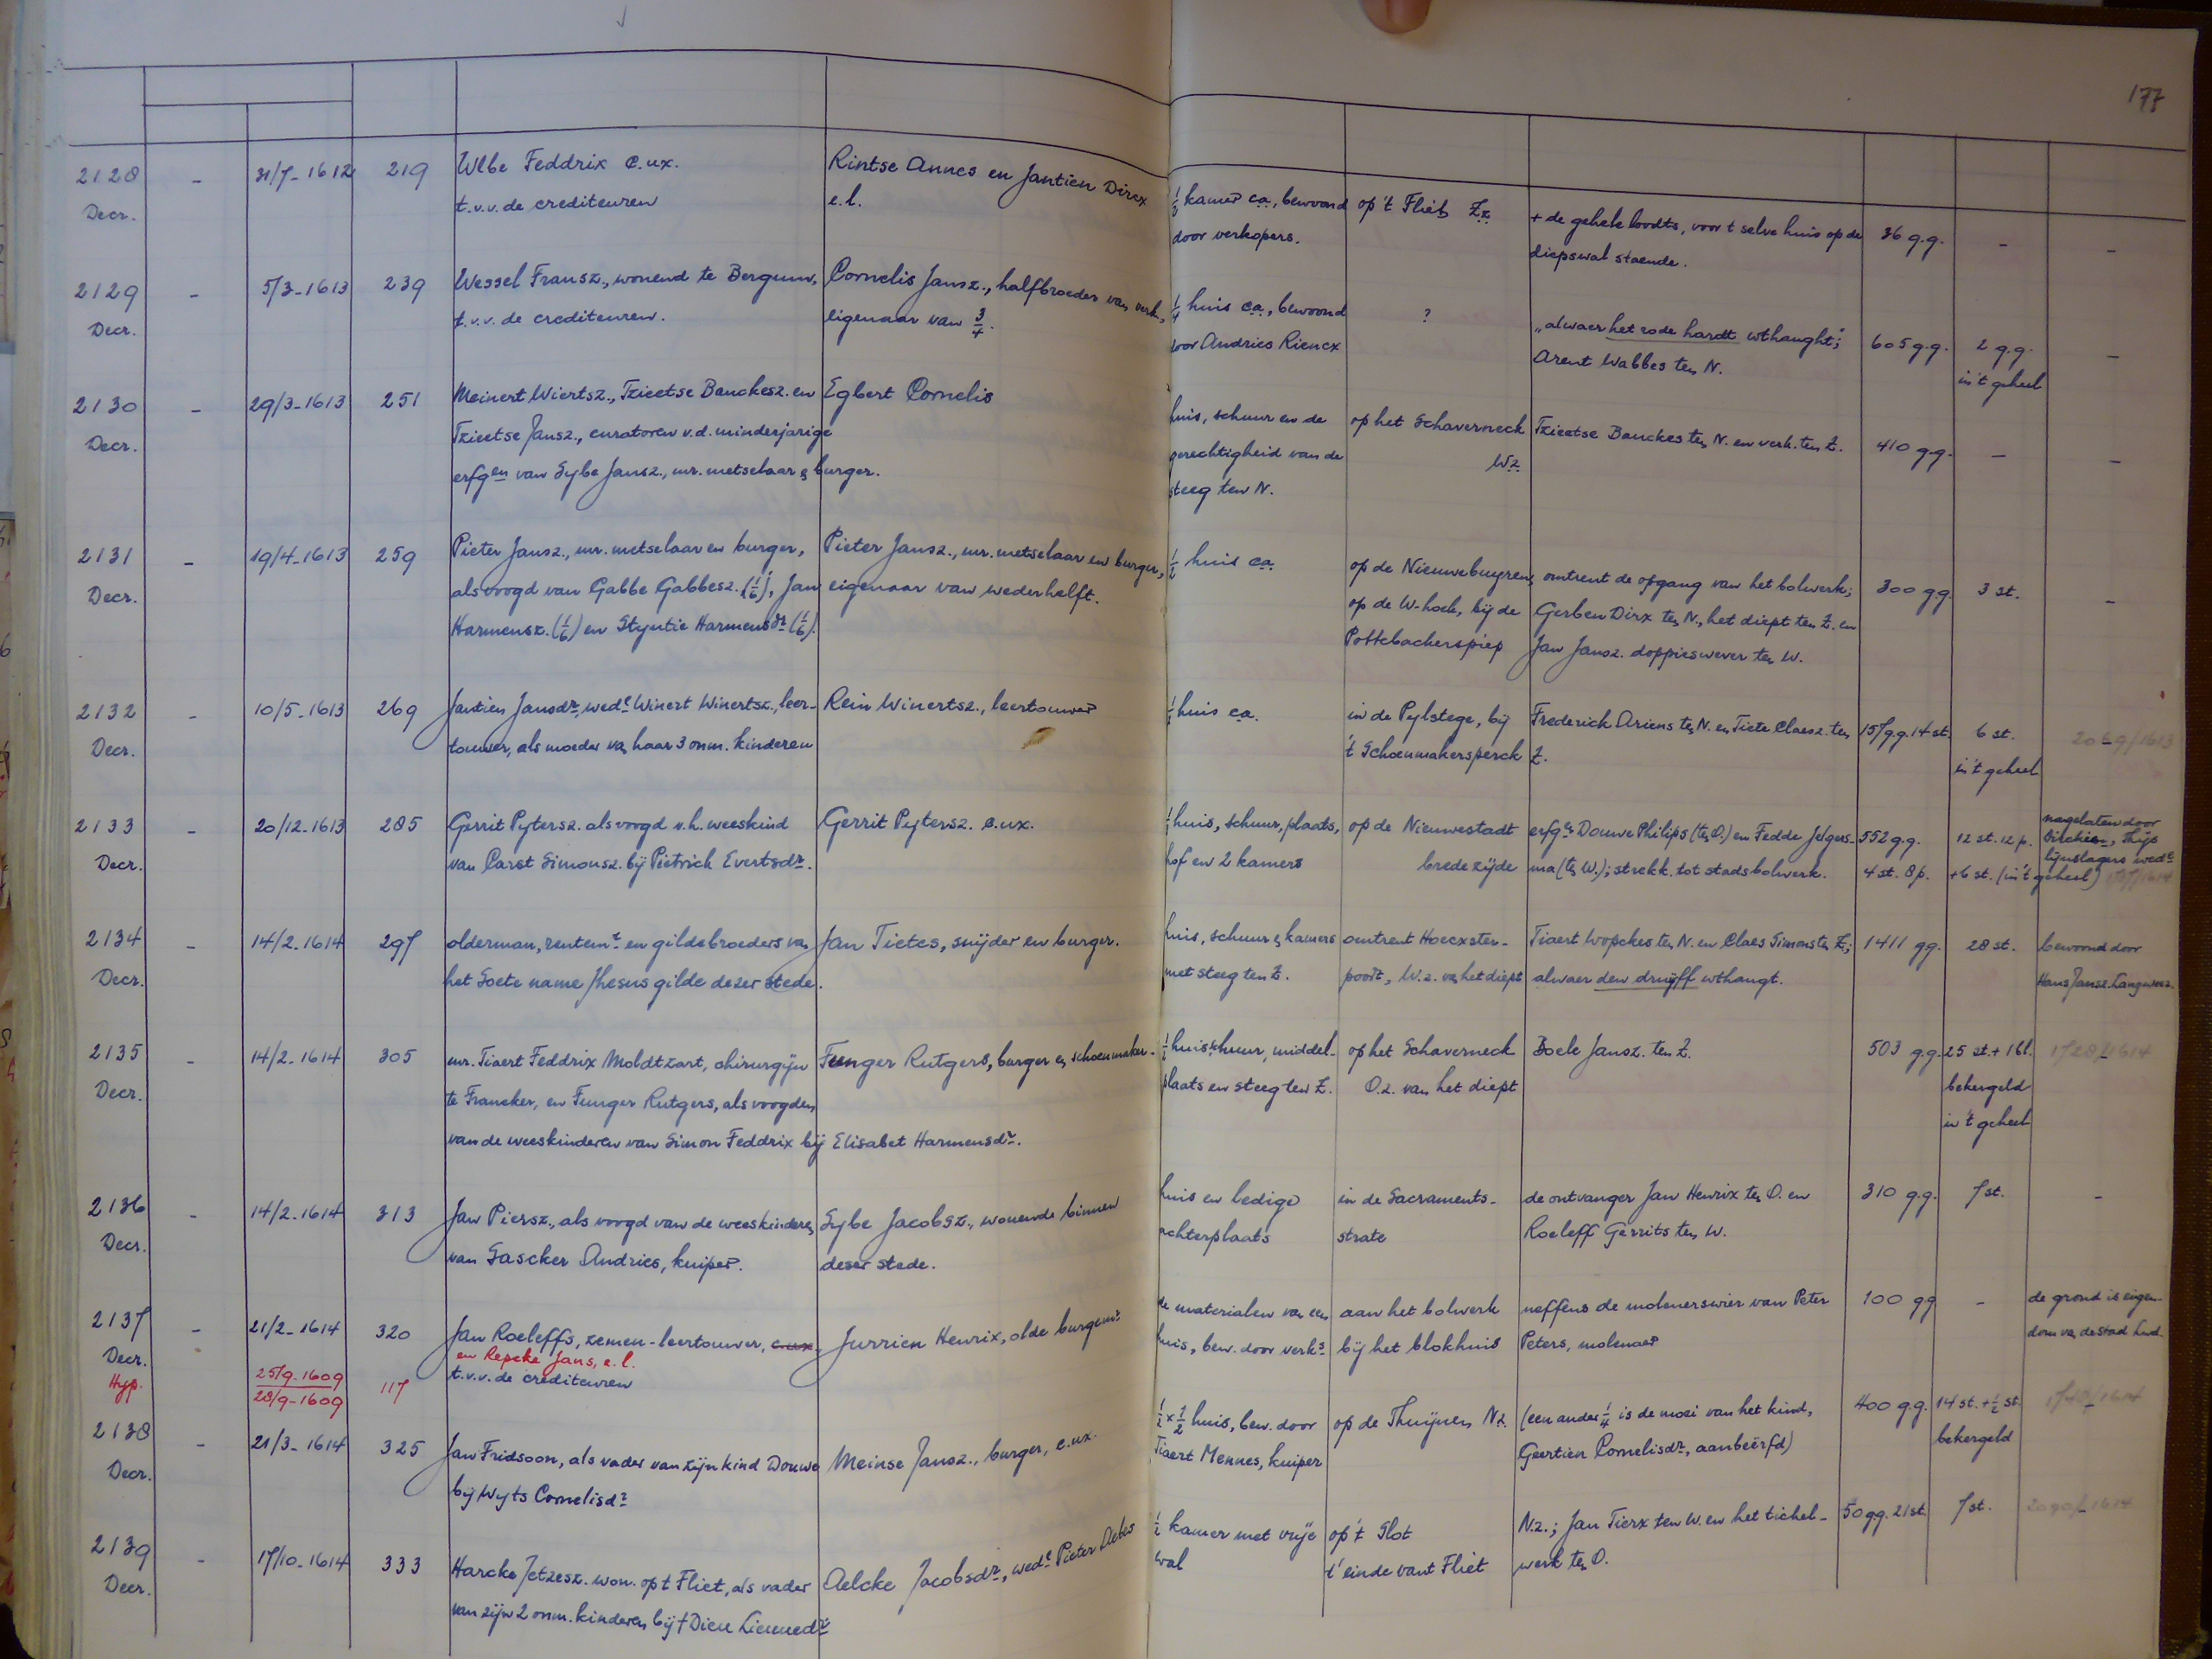 177
2128 - 31/7-1612 219 Wlbe Feddrix e.ux. Rintse Annes en Jantien Dircx
Decr. t.v.v. de crediteuren e.l.
½ kamer c.a., bewoond op 't Fliet Z.z. + de gehele loodts, voor t selve huis op de 36 g.g. - -
door verkopers. diepswal staende.
2129 - 5/3-1613 239 Wessel Fransz., wonend te Bergum, Cornelis Jansz., halfbroeder van verk.,
Decr. t.v.v. de crediteuren. eigenaar van ¾.
¼ huis c.a., bewoond ? „alwaer het rode hardt wthanght"; 605 g.g. 2 g.g. -
door Andries Riencx Arent Wabbes ten N. in 't geheel
2130 - 29/3-1613 251 Meinert Wiertsz., Tzieetse Bauckesz. en Egbert Cornelis
Decr. Tzieetse Jansz., curatoren v.d. minderjarige
erfgen van Sybe Jansz., mr. metselaar en burger.
huis, schuur en de op het Schaverneck Tzieetse Bauckes ten N. en verk. ten Z. 410 g.g. - -
gerechtigheid van de W.z.
steeg ten N.
2131 - 19/4-1613 259 Pieter Jansz., mr. metselaar en burger, Pieter Jansz., mr. metselaar en burger,
Decr. als voogd van Gabbe Gabbesz. (1/6), Jan eigenaar van wederhelft.
Harmensz. (1/6) en Styntie Harmensdr (1/6).
½ huis c.a. op de Nieuwebuyren, omtrent de opgang van het bolwerk; 300 g.g. 3 st. -
op de W. hoek, bij de Gerben Dirx ten N., het diept ten Z. en
Pottebackerspiep Jan Jansz. doppieswever ten W.
2132 - 10/5-1613 269 Jantien Jansdr, wede Winert Winertsz., leer- Rein Winertsz., leertouwer
Decr. touwer, als moeder van haar 3 onm. kinderen
huis c.a. in de Pylstege, bij Frederick Ariens ten N. en Tiete Claesz. ten 157 g.g. 14 st. 6 st.
't Schoenmakersperck Z. in 't geheel
2133 - 20/12-1613 285 Gerrit Pytersz. als voogd v.h. weeskind Gerrit Pytersz. e.ux.
Decr. van Carst Simonsz. bij Pietrick Evertsdr.
huis, schuur, plaats, op de Nieuwestadt erfgen Douwe Philips (ten O.) en Fedde Jelgers- 552 g.g. 12 st. 12 p. nagelaten door
hof en 2 kamers brede zijde ma (ten W.); strekk. tot stadsbolwerk. 4 st. 8 p. +6 st. (in 't geheel) Thijs
lijnslagers wede
2134 - 14/2-1614 297 olderman, rentemr en gildebroeders van Jan Tietes, snijder en burger.
Decr. het Soete name Jhesus gilde dezer stede.
huis, schuur en kamers omtrent Hoecxster- Tiaert Wopckes ten N. en Claes Simons ten Z.; 1411 gg. 28 st. bewoond door
met steeg ten Z. poort, W.z. van het diept alwaer den druyff wthangt. Hans Jansz. Langweer.
2135 - 14/2-1614 305 mr. Tiaert Feddrix Moldtzart, chirurgijn Funger Rutgers, burger en schoenmaker.
Decr. te Franeker, en Funger Rutgers, als voogden
van de weeskinderen van Simon Feddrix bij Elisabet Harmensdr.
½ huis, schuur, middel- op het Schaverneck Boele Jansz. ten Z. 503 g.g. 25 st. + 16 l.
plaats en steeg ten Z. O.z. van het diept bekergeld
in 't geheel
2136 - 14/2-1614 313 Jan Piersz., als voogd van de weeskinderen Sybe Jacobsz., wonende binnen
Decr. van Gascker Andries, kuiper. deser stede.
huis en ledige in de Sacraments- de ontvanger Jan Henrix ten O. en 310 g.g. 7 st. -
achterplaats strate Roeleff Gerrits ten W.
2137 - 21/2-1614 320 Jan Roeleffs, zemen-leertouwer, e.ux. Jurrien Henrix, olde burgemr
Decr. en Repcke Jans, e.l.
Hyp. 25/9-1609 117 t.v.v. de crediteuren
28/9-1609
de materialen van een aan het bolwerk neffens de molenerswier van Peter 100 gg - de grond is eigen-
huis, bew. door verks bij het blokhuis Peters, molenaer dom van de stad Lwd.
2138 - 21/3-1614 325 Jan Fridsoon, als vader van zijn kind Douwe Meinse Jansz., burger, e.ux.
Decr. bij Wyts Cornelisdr
½ x ½ huis, bew. door op de Thuijnen N.z. (een ander ¼ is de moei van het kind, 400 g.g. 14 st. + ½ st.
Tiaert Mennes, kuiper Geertien Cornelisdr, aanbeërfd) bekergeld
2139 - 17/10-1614 333 Harcke Jetzesz. won. op t Fliet, als vader Aelcke Jacobsdr, wede Pieter Aebes
Decr. van zijn 2 onm. kinderen bij † Dieu Lieuwedr
½ kamer met vrije op 't Slot N.z.; Jan Tierx ten W. en het tichel- 50 gg. 21 st. 7 st.
wal t' einde vant Fliet werk ten O.